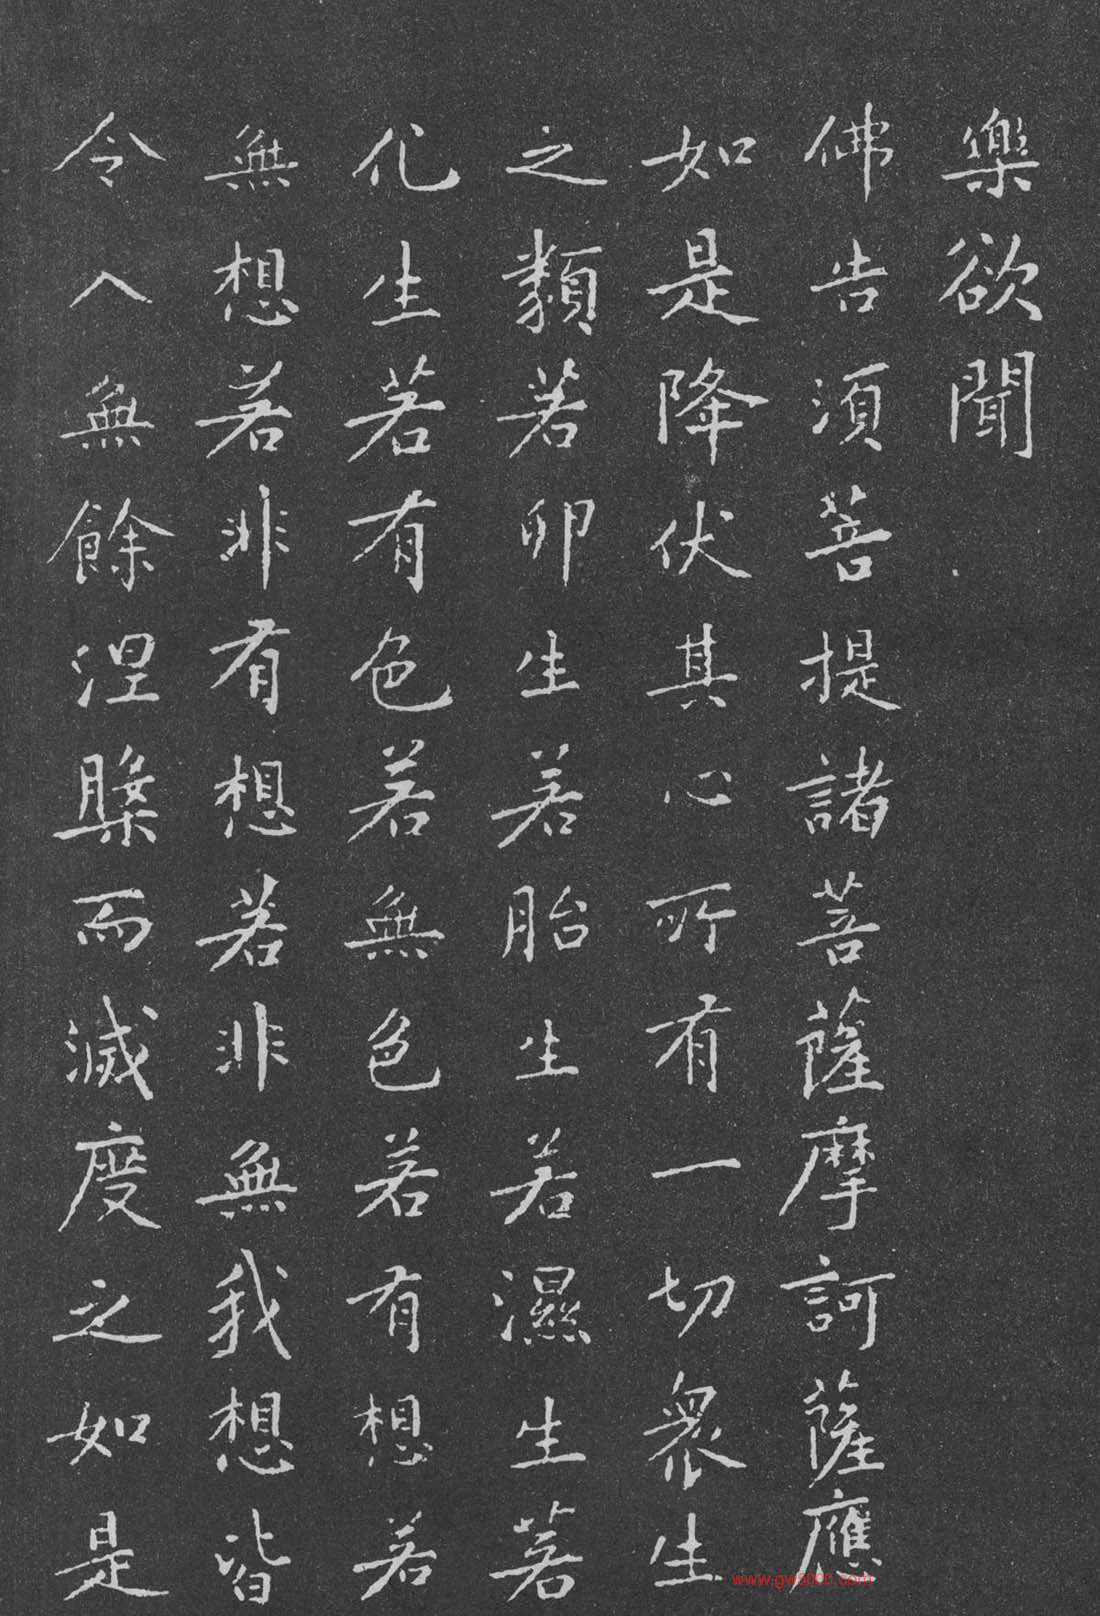 樂欲聞
佛告須菩提諸菩薩摩訶薩應
如是降伏其心所有一切眾生
之類若卵生若胎生若濕生若
化生若有色若無色若有想若
無想若非有想若非無我想皆
令入無餘涅槃而滅度之如是